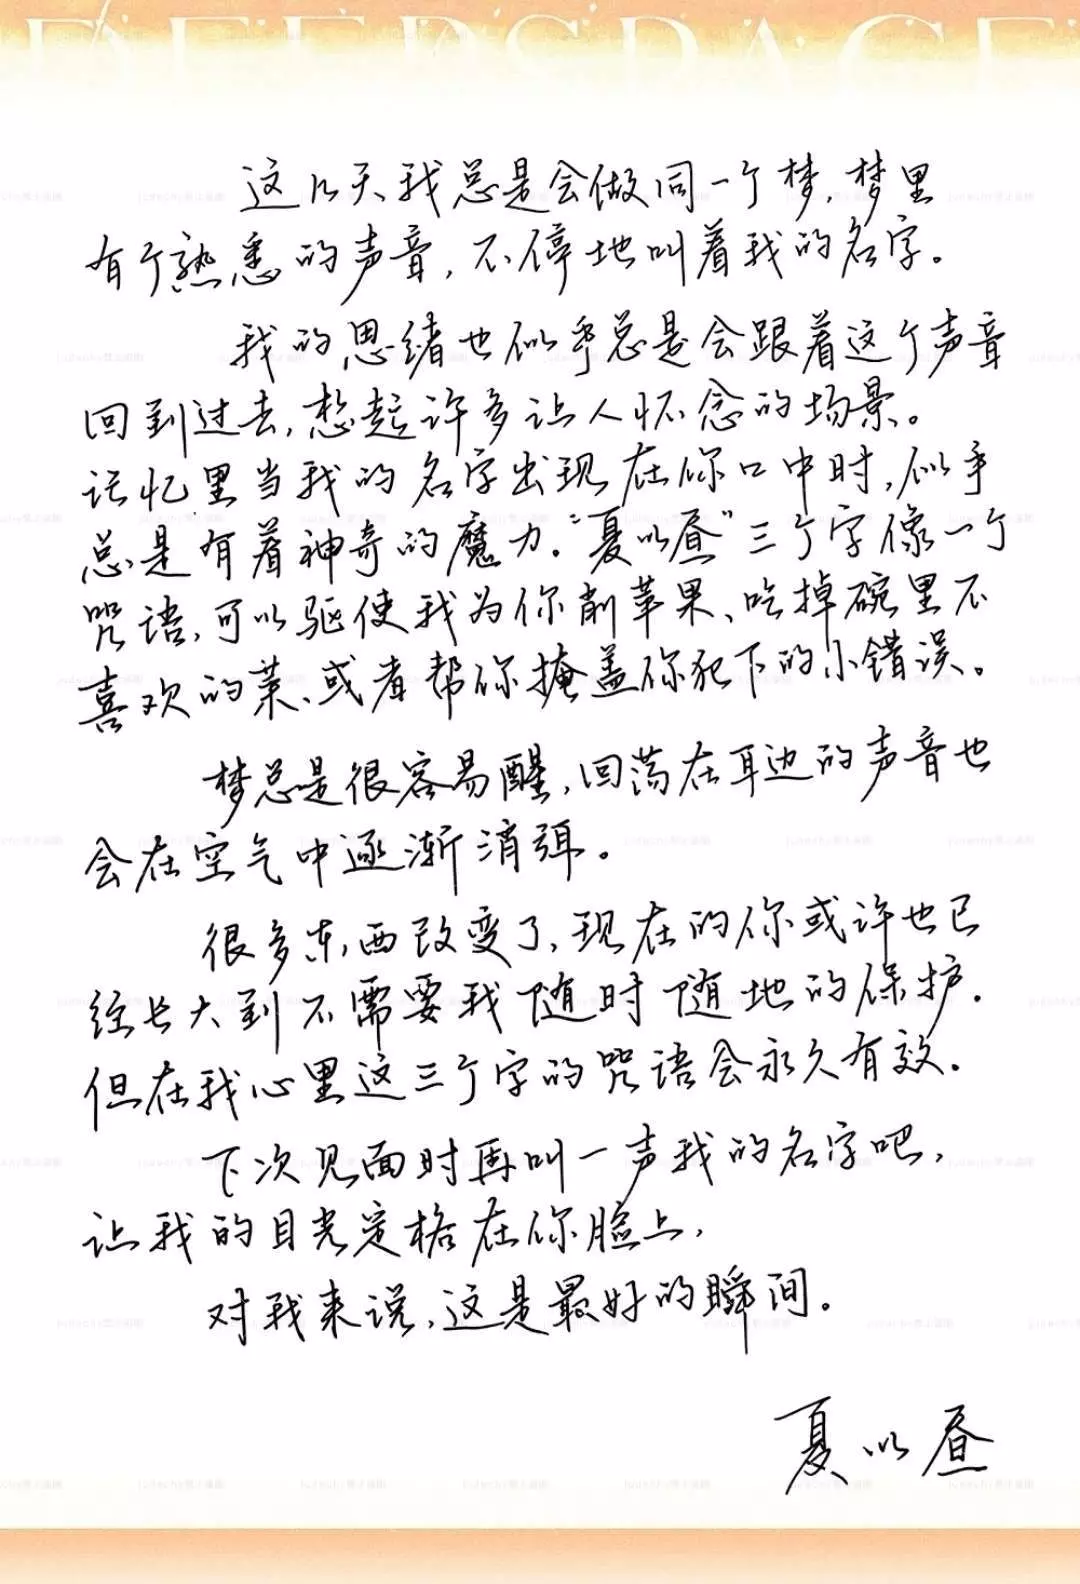 DEEPSPACE
这几天我总是会做同一个梦,梦里
有个熟悉的声音,不停地叫着我的名字。
我的思绪也似乎总是会跟着这个声音
回到过去,想起许多让人怀念的场景。
记忆里当我的名字出现在你口中时,似乎
总是有着神奇的魔力。“夏以昼”三个字像一个
咒语,可以驱使我为你削苹果、吃掉碗里不
喜欢的菜、或者帮你掩盖你犯下的小错误。
梦总是很容易醒,回荡在耳边的声音也
会在空气中逐渐消弭。
很多东西改变了,现在的你或许也已
经长大到不需要我随时随地的保护。
但在我心里这三个字的咒语会永久有效。
下次见面时再叫一声我的名字吧,
让我的目光定格在你脸上,
对我来说,这是最好的瞬间。
夏以昼